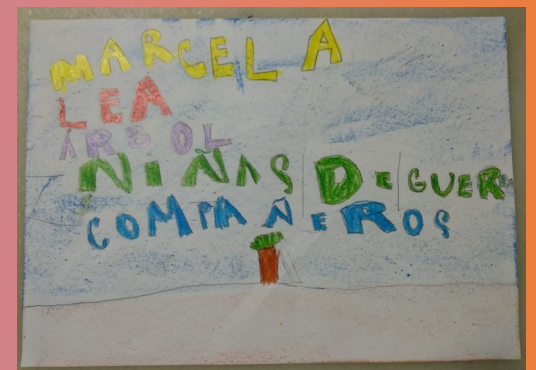 MARCELA
LEA
ARBOL
NIÑAS DE GUER
COMPAÑEROS